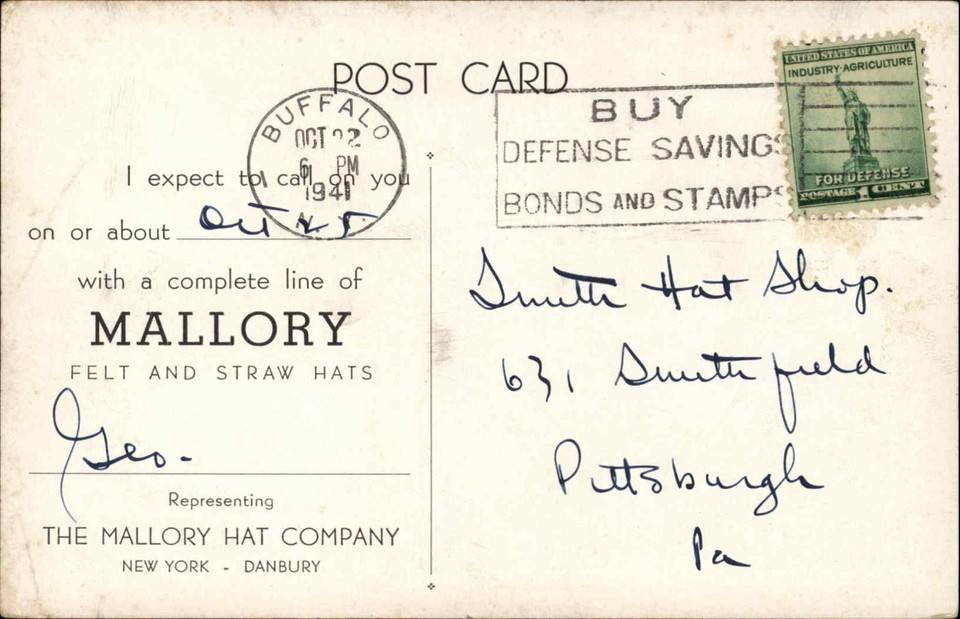 POST CARD
BUFFALO
OCT 22
6 PM
1941
N.Y.
BUY
DEFENSE SAVINGS
BONDS AND STAMPS
UNITED STATES OF AMERICA
INDUSTRY·AGRICULTURE
FOR DEFENSE
POSTAGE 1 CENT
I expect to call on you
on or about Oct
with a complete line of
MALLORY
FELT AND STRAW HATS
Geo.
Representing
THE MALLORY HAT COMPANY
NEW YORK - DANBURY
Smith Hat Shop.
631 Smithfield
Pittsburgh
Pa